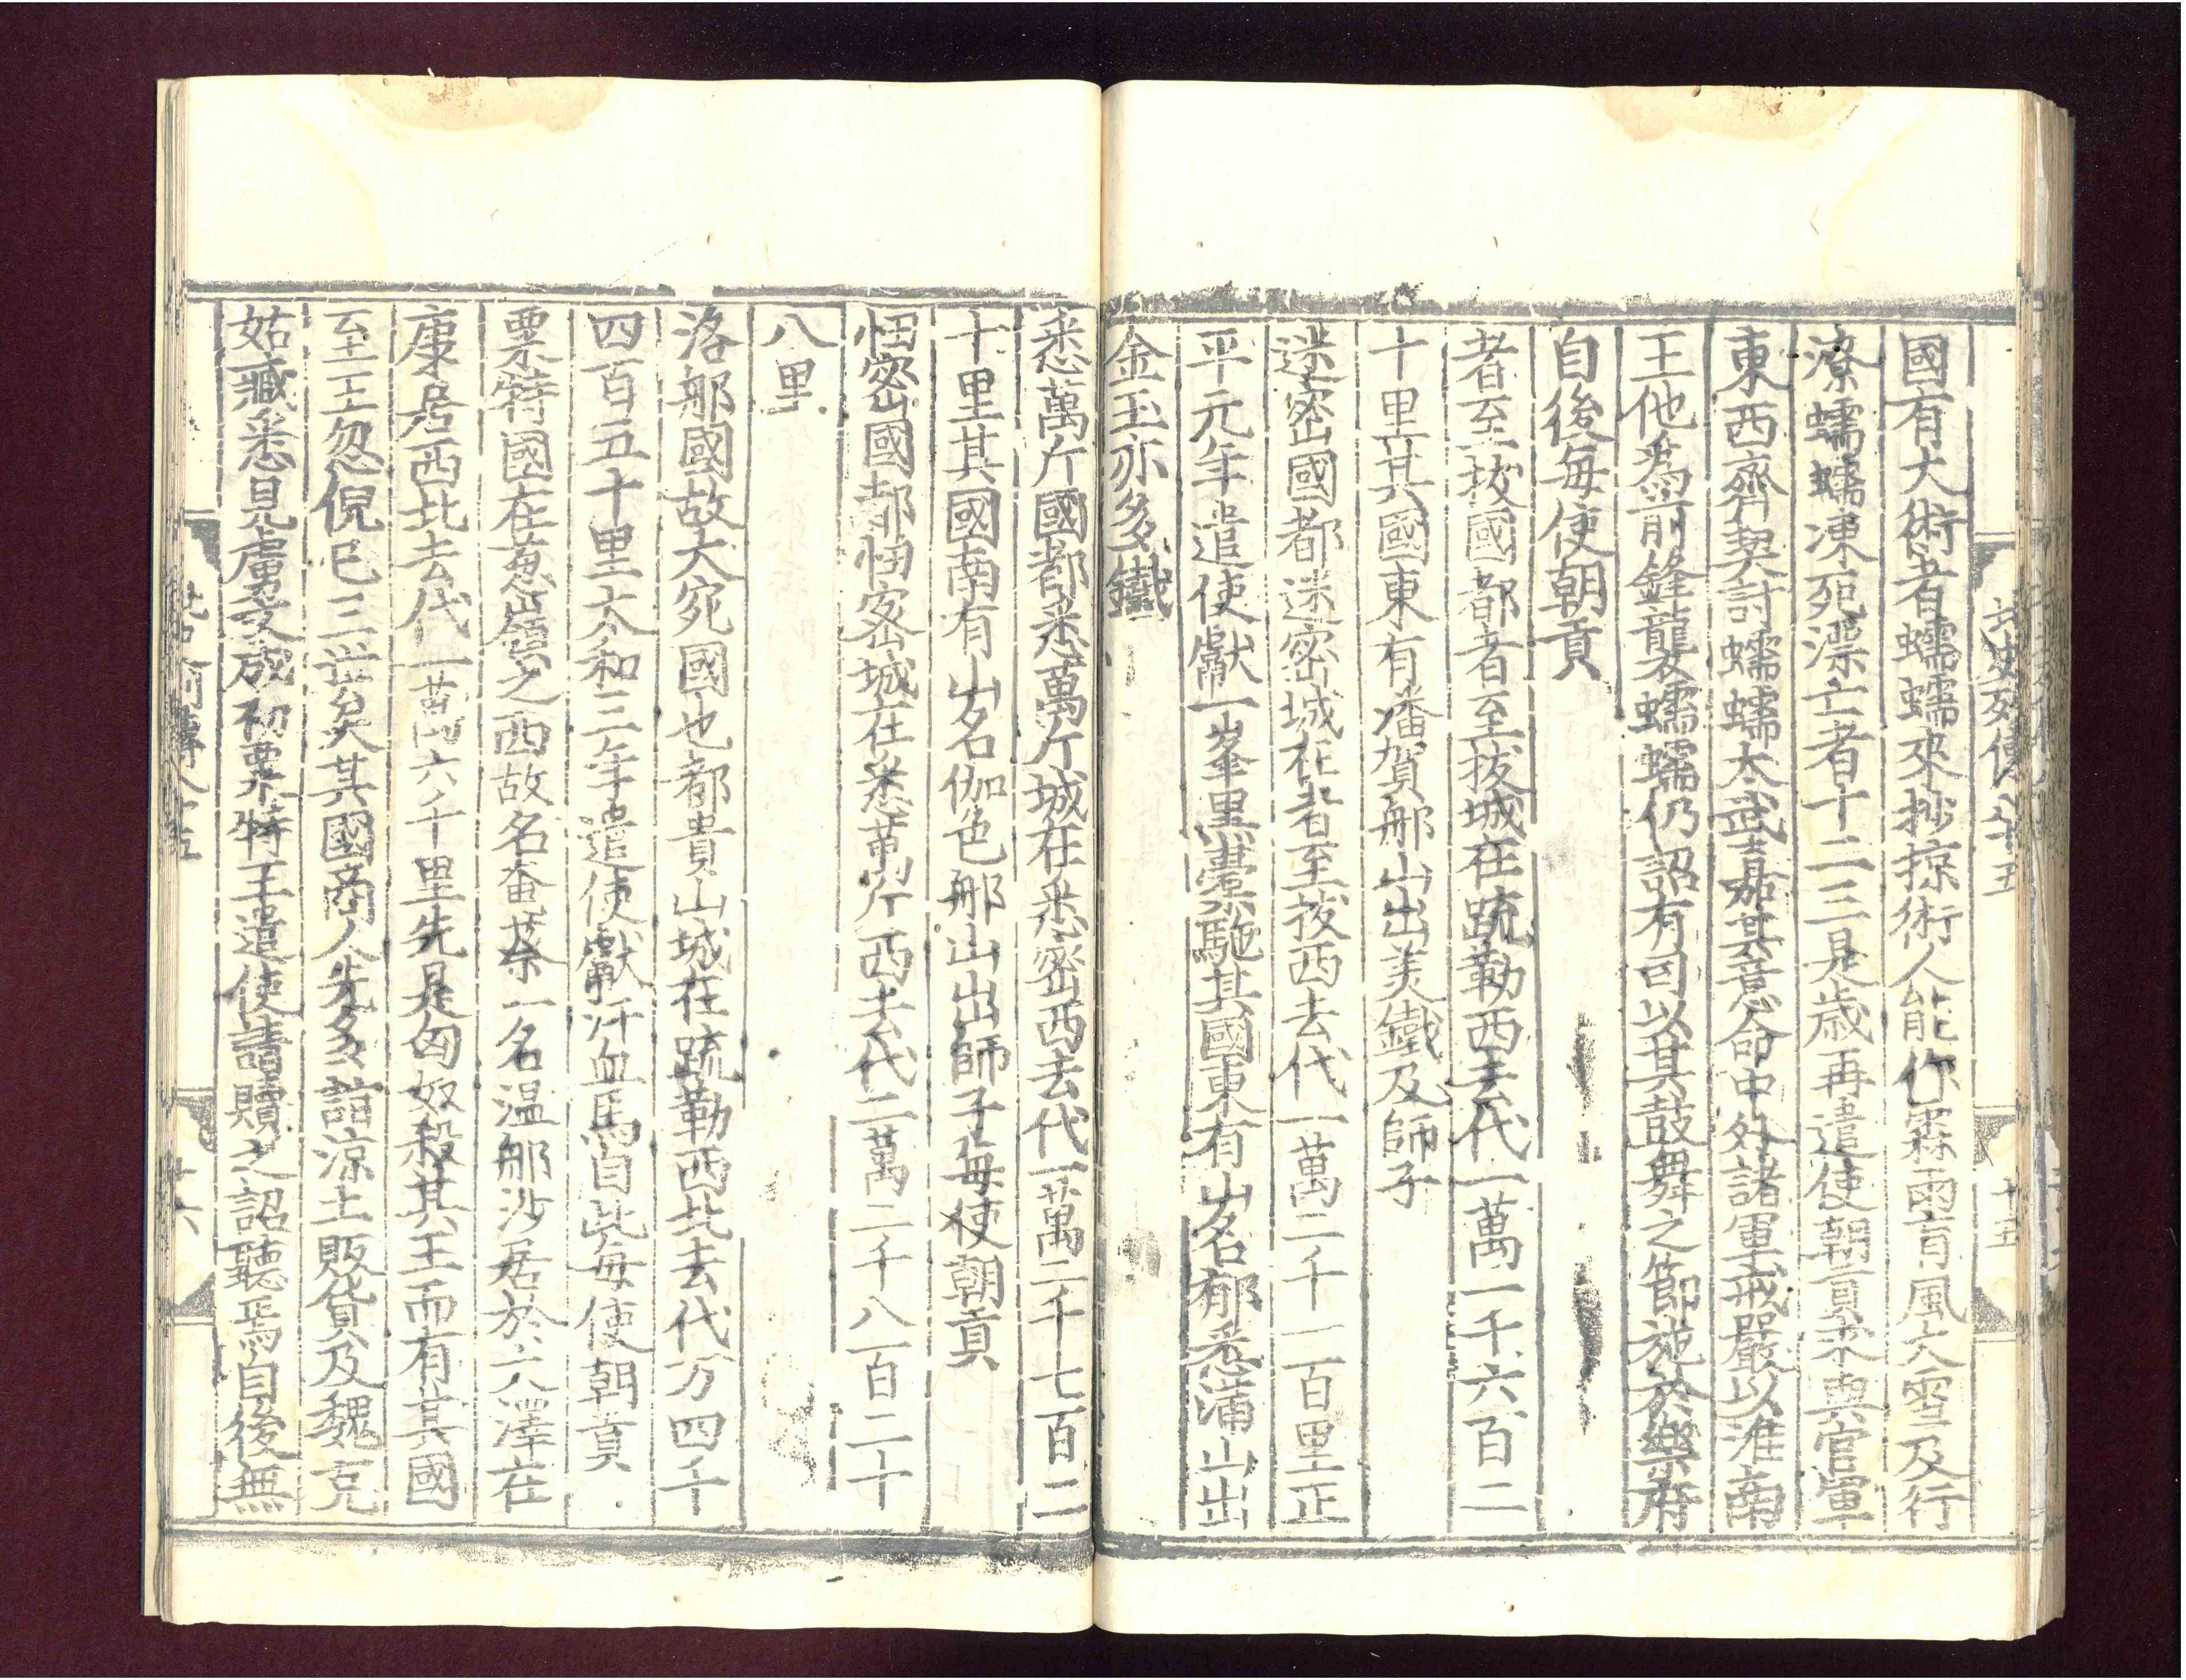 北史列傳八十五
十五
國有大術者蠕蠕來抄掠術人能作霖雨盲風大雪及行
潦蠕蠕凍死漂亡者十二三是歲再遣使朝貢求與官軍
東西齊契討蠕蠕太武嘉其意命中外諸軍戒嚴以淮南
王他爲前鋒襲蠕蠕仍詔有司以其鼓舞之節施於樂府
自後每使朝貢
者至拔國都者至拔城在疏勒西去代一萬一千六百二
十里其國東有潘賀那山出美鐵及師子
迷密國都迷密城在者至拔西去代一萬二千一百里正
平元年遣使獻一峯黑橐駞其國東有山名郁悉滿山出
金玉亦多鐵
悉萬斤國都悉萬斤城在悉密西去代一萬二千七百二
十里其國南有山名伽色那山出師子每使朝貢
忸密國都忸密城在悉萬斤西去代二萬二千八百二十
八里
洛那國故大宛國也都貴山城在疏勒西北去代万四千
四百五十里太和三年遣使獻汗血馬自此每使朝貢
粟特國在葱嶺之西故名奄蔡一名温那沙居於大澤在
康居西北去代一萬六千里先是匈奴殺其王而有其國
至王忽倪已三世矣其國商人先多詣涼土販貨及魏克
姑臧悉見虜文成初粟特王遣使請贖之詔聽焉自後無
十六